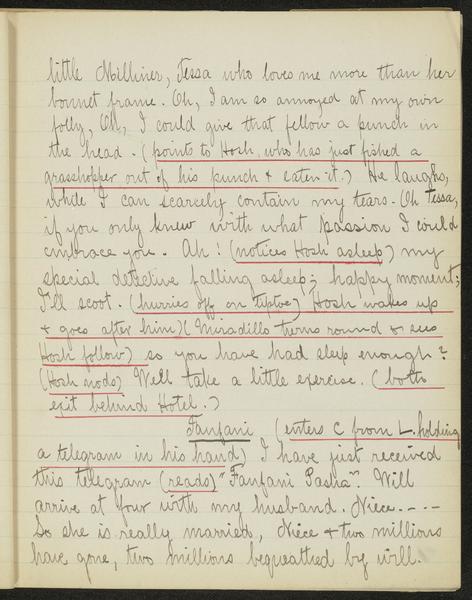 little Milliner, Tessa who loves me more than her
bonnet frame. Oh, I am so annoyed at my own
folly, Oh, I could give that fellow a punch in
the head. (points to Hosh, who has just fished a
grasshopper out of his punch & eaten it.) He laughs,
while I can scarcely contain my tears. Oh Tessa,
if you only knew with what passion I could
embrace you. Ah! (notices Hosh asleep) my
special detective falling asleep; happy moment;
I'll scoot. (hurries off on tiptoe) Hosh wakes up
& goes after him) (Miradillo turns round & sees
Hosh follow) so you have had sleep enough?
(Hosh nods) Well take a little exercise. (both
exit behind Hotel.)
Fanfani (enters C from L. holding
a telegram in his hand) I have just received
this telegram (reads) "Fanfani Pasha". Will
arrive at four with my husband. Niece.----
So she is really married, Niece & two millions
have gone, two millions bequeathed by will.